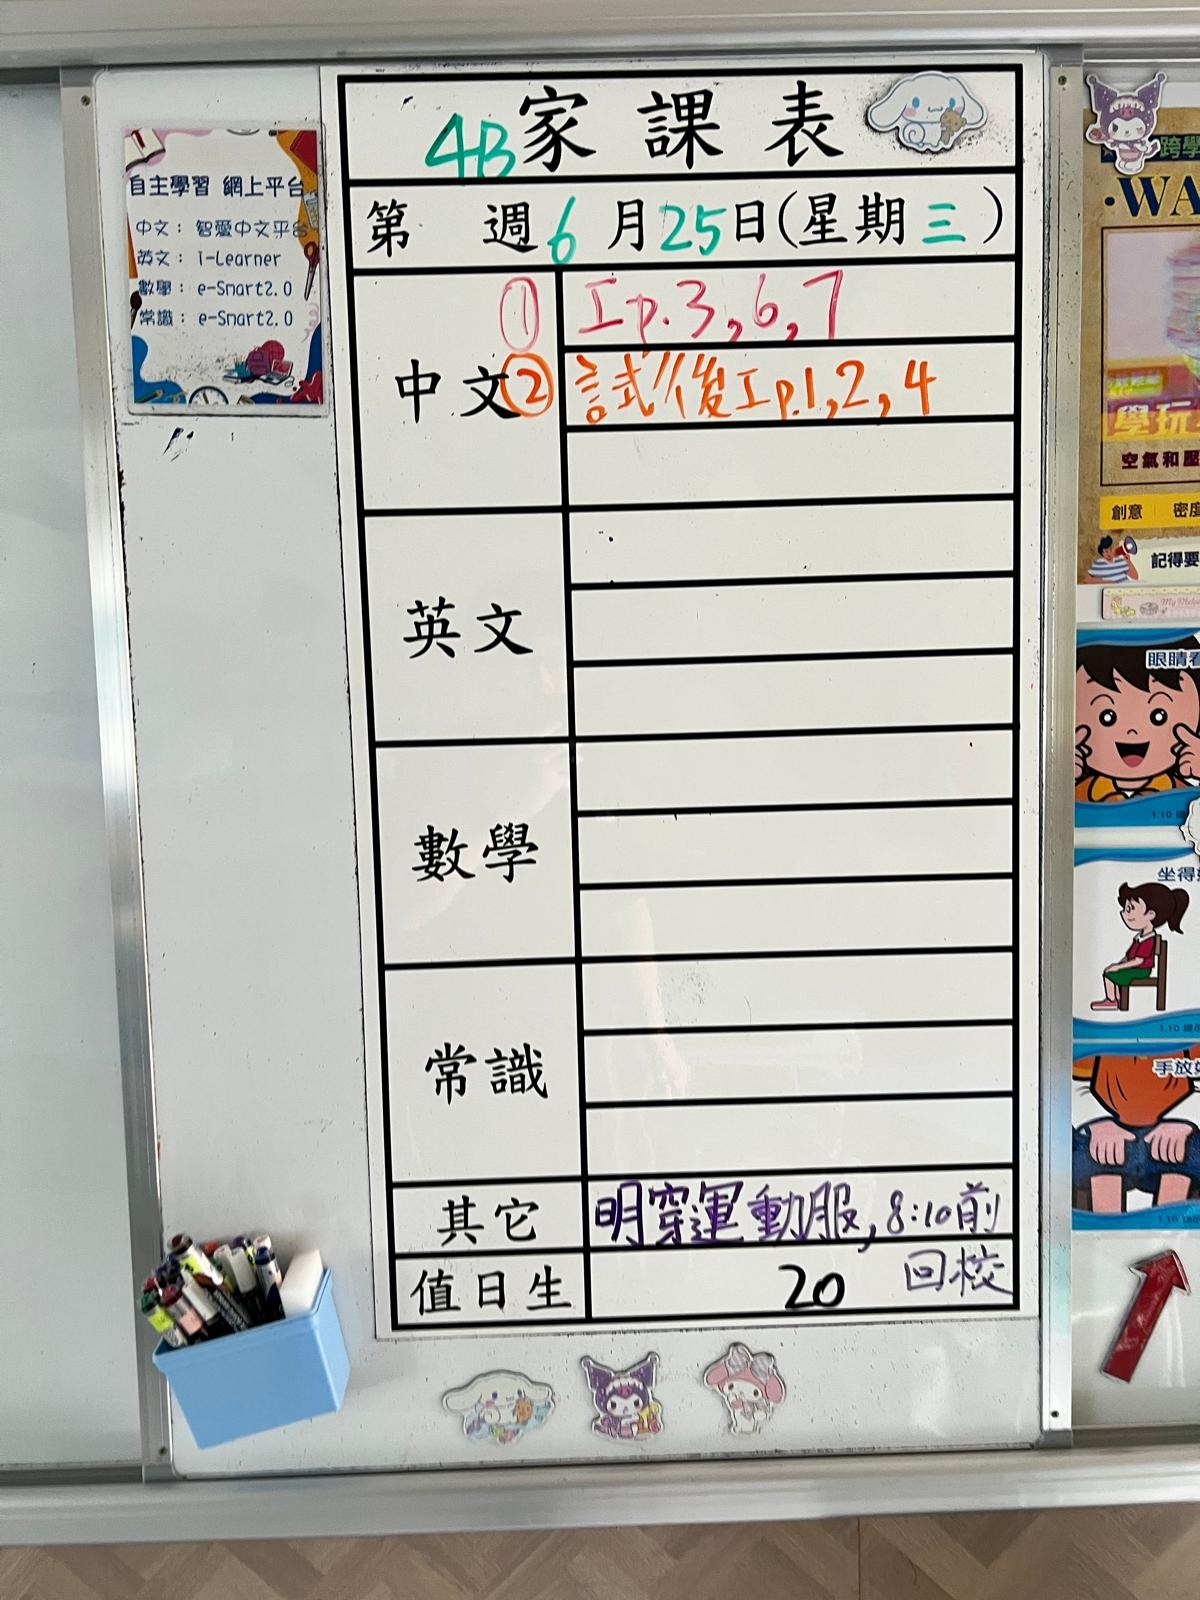 4B家課表
第 週6月25日(星期三)
中文
① 工p.3,6,7
② 試後工p.1,2,4
英文
數學
常識
其它
明穿運動服,8:10前
回校
值日生
20
自主學習 網上平台
中文：智愛中文平台
英文：i-Learner
數學：e-Smart2.0
常識：e-Smart2.0
跨學
·WA
學玩
空氣和壓
創意
密度
記得要
My Melo
眼睛看
1.10
坐得好
1.10
手放好
1.10